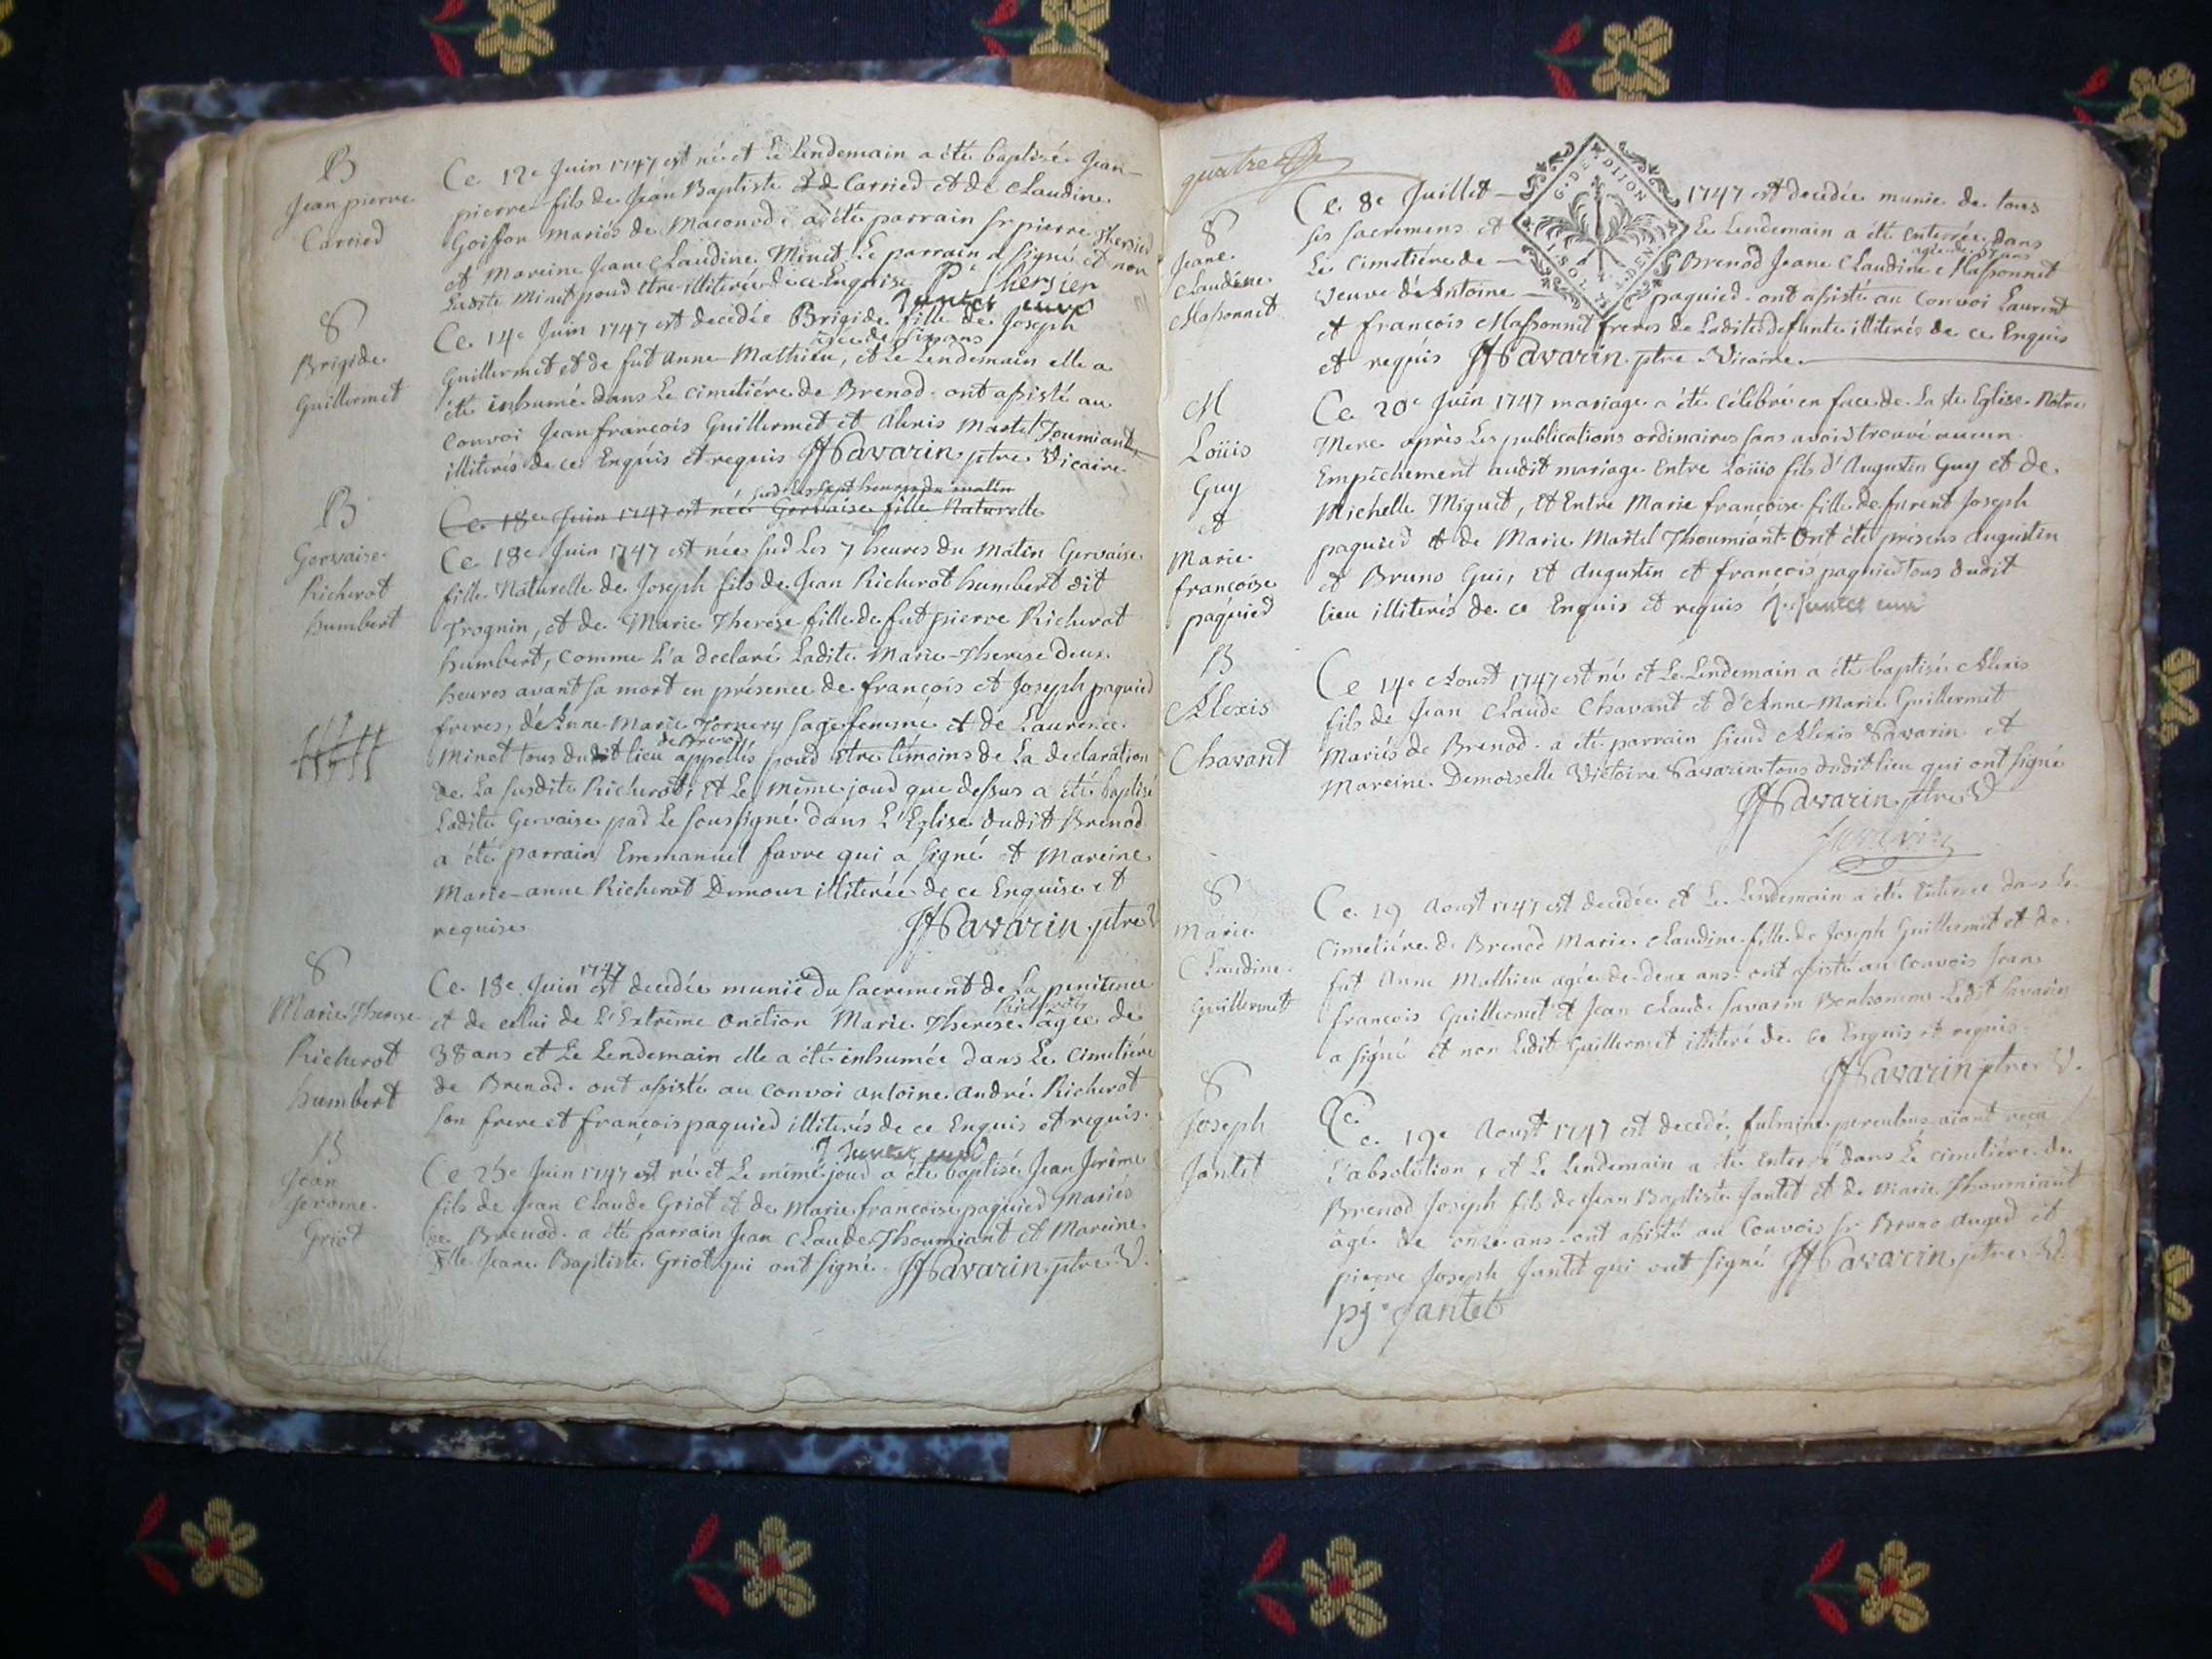 B
Jean pierre
Carried
Ce 12e Juin 1747 est né et Le Lendemain a été baptisé Jean-
pierre fils de Jean Baptiste Carried et de Claudine
Goiffon mariés de Maconod. a été parrain sr pierre Thersied
et Mareine Jeane Claudine Minet. Le parrain a signé et non
Ladite Minet poud être illiterée de ce Enquise P. thersier
S
Brigide
Guillermet
Ce 14e Juin 1747 est decedée Brigide fille de Joseph
agée de six ans
Guillermet et de fut Anne Mathieu, et Le Lendemain elle a
été inhumé dans Le cimetiére de Brenod. ont assisté au
convoi Jean françois Guillermet et Alexis Martel Toumiant,
illiterés de ce Enquis et requis JfSavarin ptre Vicaire
B
Gervaise
Richerot
humbert
sud les sept heures du matin
Ce 18e Juin 1747 est née Gervaise fille Naturelle
Ce 18e Juin 1747 est née sud Les 7 heures du Matin Gervaise
fille Naturelle de Joseph fils de Jean Richerot humbert dit
Trognin, et de Marie Therese fille de fut pierre Richerot
humbert, comme L'a declaré Ladite Marie-Therese deux
heures avant sa mort en présence de françois et Joseph paquied
freres, d'Anne Marie Tornery sage femme et de Laurence
de Brenod
Minet tous dudit lieu appellés poud être témoins de La declaration
de La susdite Richerot; Et Le même joud que dessus a été baptisé
Ladite Gervaise pad Le soussigné dans L'Eglise dudit Brenod
a été parrain Emmanuel favre qui a signé et Mareine
Marie-anne Richerot Dumour illiterée de ce Enquise et
requise JfSavarin ptre V
S
Marie Therese
Richerot
humbert
1747
Ce 18e Juin est decedée munie du sacrement de La penitence
Richerot
et de celui de L'Extrême onction Marie Therese agée de
38 ans et Le Lendemain elle a été inhumée dans Le cimetiére
de Brenod. ont assisté au convoi antoine andré Richerot
son frere et françois paquied illiterés de ce Enquis et requis.
B
Jean
Jerome
Griot
Ce 25e Juin 1747 est né et Le même joud a été baptisé Jean Jerôme
fils de Jean Claude Griot et de Marie françoise paquied Mariés
de Brenod. a été parrain Jean Claude Thoumiant et Mareine
Jeane Baptiste Griot qui ont signé. JfSavarin ptre V.
quatre
G. DE DIJON
S
Jeane
Claudine
Massonnet
Ce 8e Juillet 1747 est decedée munie de tous
ses sacremens et Le Lendemain a été Enterrée dans
Le Cimetiére de Brenod Jeane Claudine Massonnet
veuve d'Antoine paquied. ont assisté au Convoi Laurent
et françois Massonnet freres de Ladite defunte illiterés de ce Enquis
et requis JfSavarin ptre Vicaire
M
Loüis
Guy
et
Marie
françoise
paquied
Ce 20e Juin 1747 mariage a été célébré en face de La ste Eglise Nôtre
Mere après Les publications ordinaires sans avoid trouvé aucun
Empêchement audit mariage Entre Loüis fils d'Augustin Guy et de
Michelle Miguet, Et Entre Marie françoise fille de furent Joseph
paquied et de Marie Martel Thoumiant. Ont été présens Augustin
et Bruno Gui, Et Augustin et françois paquied tous dudit
lieu illiterés de ce Enquis et requis
B
Alexis
Chavant
Ce 14e Aoust 1747 est né et Le Lendemain a été baptisé Alexis
fils de Jean Claude Chavant et d'Anne-Marie Guillermet
Mariés de Brenod. a été parrain sieud Alexis Savarin et
Mareine Demoiselle Victoire Savarin tous dudit lieu qui ont signé
JfSavarin ptre V
Savarin
S
Marie
Claudine
Guillermet
Ce 19 Aoust 1747 est decedée et Le Lendemain a été Enterrée dans Le
cimetiére de Brenod Marie Claudine fille de Joseph Guillermet et de
fut Anne Mathieu agée de deux ans. ont assisté au convois Jean
françois Guillermet et Jean Claude Savarin Bonhomme. Ledit Savarin
a signé et non Ledit Guillermet illiteré de ce Enquis et requis.
JfSavarin ptre V.
S
Joseph
Jantet
Ce 19e Aoust 1747 est decedé, fulmine percubus aiant reçu
L'absolution, et Le Lendemain a été Enterré dans Le cimetiére de
Brenod Joseph fils de Jean Baptiste Jantet et de Marie Thoumiant
agé de onze ans. ont assisté au Convois sr Bruno Auged et
pierre Joseph Jantet qui ont signé JfSavarin ptre V.
pj Jantet